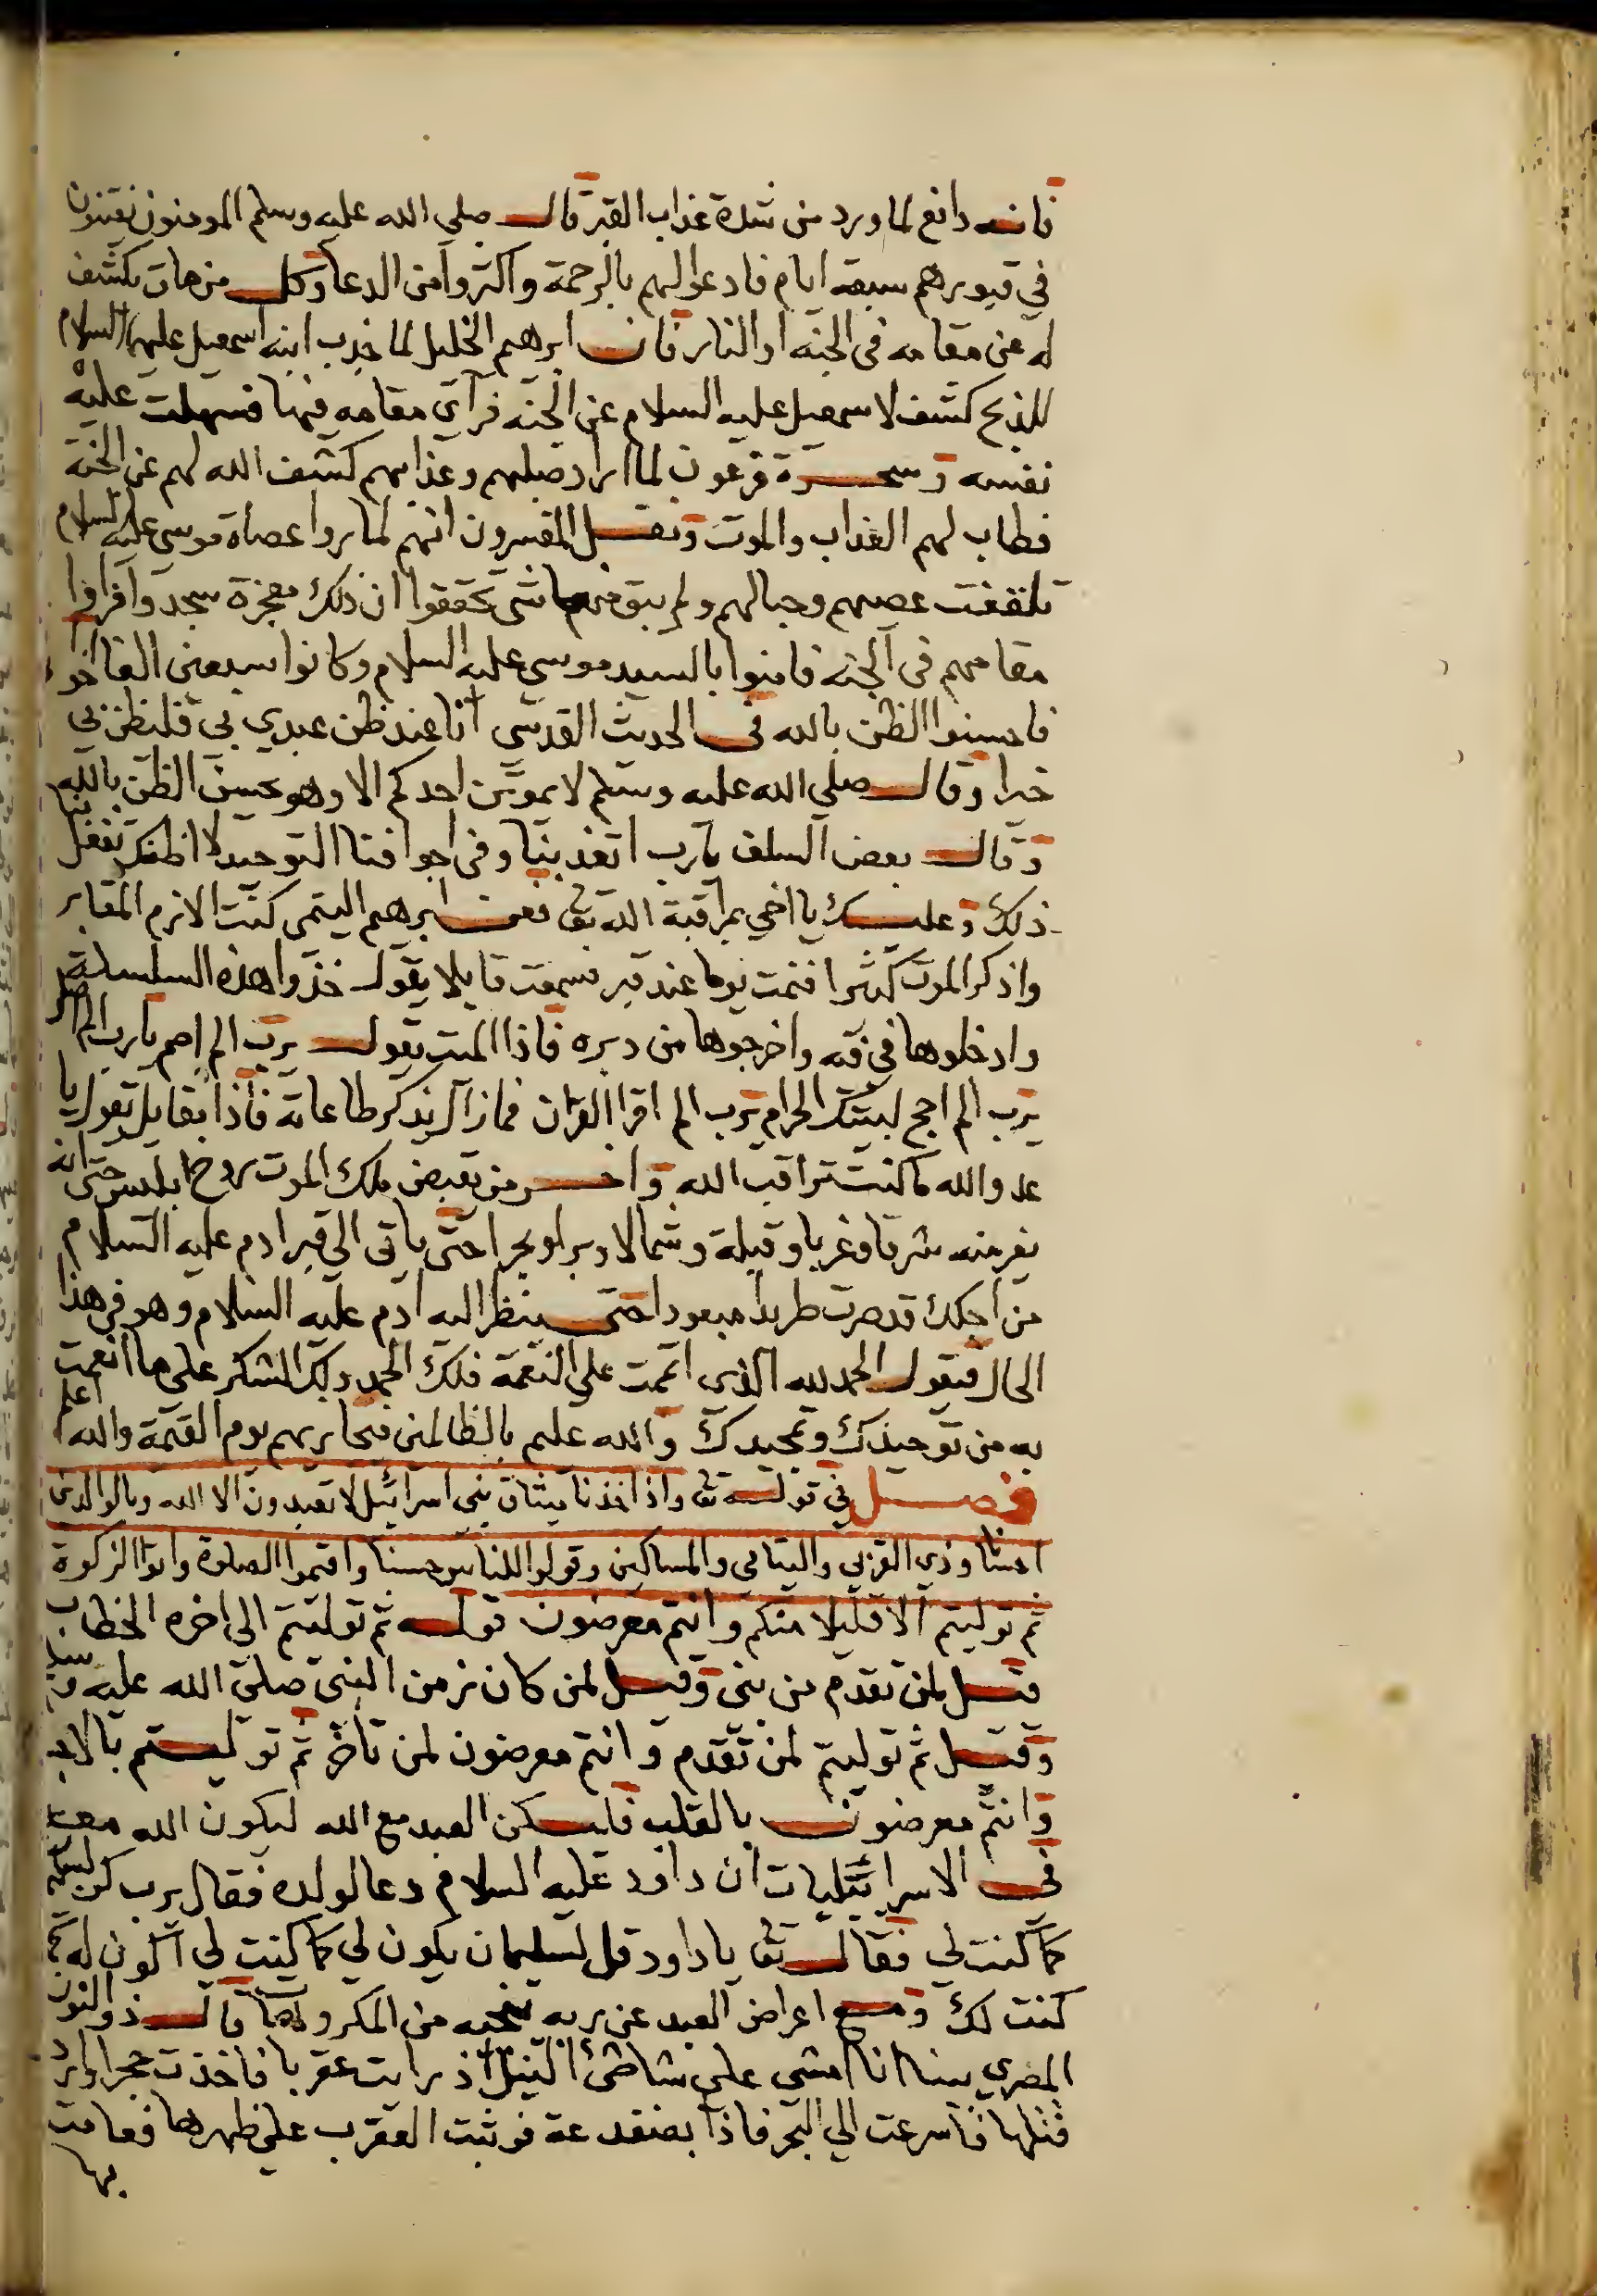 فانه دافع لما ورد من شدة عذاب القبر قال صلي الله عليه وسلم المومنون يفتنون
في قبورهم سبعة ايام فادعوا لهم بالرحمة واكثروا من الدعا وكل من مات يكشف
له عن مقامه في الجنه او النار فان ابرهيم الخليل لما ابنه اسمعيل عليهما السلام
للذبح كشف لاسمعيل عليه السلام عن الجنه فرآي مقامه فيها فسهلت عليه
نفسه وسحرة فرعون لما اراد صلبهم وعذابهم كشف الله لهم عن الجنة
فطاب لهم العذاب والموت ونقل المفسرون انهم لما روا عصاة موسي عليه السلام
تلقفت عصيهم وحبالهم ولم يبق منها شي تحققوا ان ذلك معجزة سجدوا فراوا
مقامهم في الجنه فامنوا بالسيد موسي عليه السلام وكانوا سبعين الفا
فاحسنوا الظن بالله في الحديث القدسي انا عند ظن عبدي بي فليظن بي
خيرا وقال صلي الله عليه وسلم لا يموتن احدكم الا وهو يحسن الظن بالله
وقال بعض السلف يارب اتعذبنا وفي اجوافنا التوحيد لا اظنك تفعل بنا
ذلك وعليك يا اخي بمراقبة الله تعا فعن ابرهيم التيمي كنت الازم المقابر
واذكر الموت كثيرا فنمت يوما عند قبر فسمعت قايلا يقول خذوا هذه السلسلة
وادخلوها في فمه واخرجوها من دبره فاذا الميت يقول يرب الم اصم يارب الم اصل
يرب الم احج لبيتك الحرام يرب الم اقرا القران فمازال يذكر طاعاته فاذا بقايل يقول يا
عدو الله ما كنت تراقب الله واخر من يقبض ملك الموت روح ابليس حتي انه
يفر منه شرقا وغربا وقبلة وشمالا وبرا وبحرا حتي ياتي الي قبر ادم عليه السلام
من اجلك قد صرت طريدا مبعودا حتي ينظر اليه ادم عليه السلام وهو في هذا
الحال فيقول الحمد لله الذي اتممت علي النعمة فلك الحمد ولك الشكر علي ما انعمت
به من توحيدك وتمجيدك والله عليم بالظالمين فيجازيهم يوم القيمة والله اعلم
فصل في قوله تعا واذ اخذنا ميثاق بني اسرائيل لا تعبدون الا الله وبالوالدين
احسانا وذي القربي واليتامي والمساكين وقولوا للناس حسنا واقيموا الصلوة واتوا الزكوة
ثم توليتم الا قليلا منكم وانتم معرضون قوله ثم توليتم الي اخره الخطاب
قيل لمن تقدم من بني وقيل لمن كان زمن النبي صلي الله عليه وسلم
وقيل ثم توليتم لمن تقدم وانتم معرضون لمن تاخر ثم توليتم
وانتم معرضون بالقلب فليكن العبد مع الله ليكون الله معه
في الاسرائيليات ان داود عليه السلام دعا لولده فقال يرب كن لسليمان
كما كنت لي فقال تعا يا داود قل لسليمان يكون لي كما كنت لي اكون له كما
كنت لك ومع اعراض العبد عن ربه ينجيه من المكروه كما قال ذو النون
المصري بينا انا امشي علي شاطئ النيل اذ رايت عقربا فاخذت حجرا
قتلها فاسرعت الي البحر فاذا بضفدعة فوثبت العقرب علي ظهرها فعامت
بها